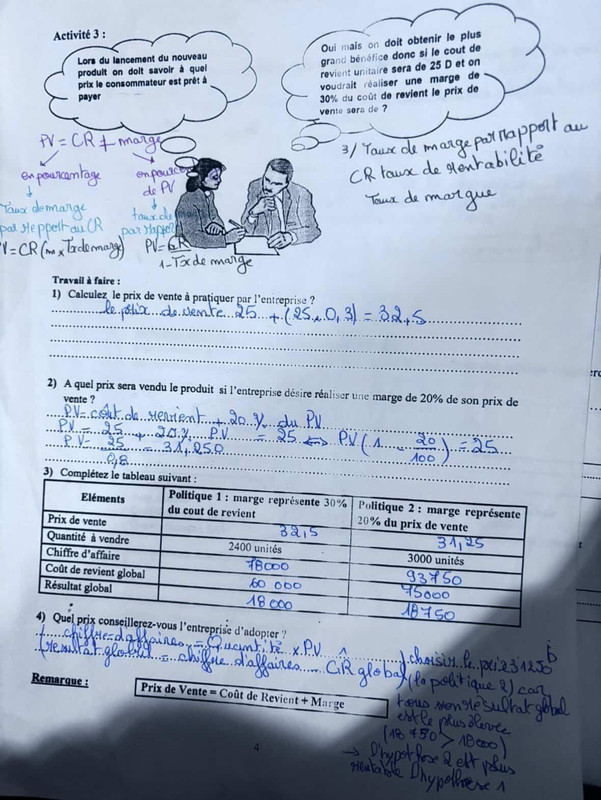 Activité 3 :
Lors du lancement du nouveau
produit on doit savoir à quel
prix le consommateur est prêt à
payer
Oui mais on doit obtenir le plus
grand bénéfice donc si le cout de
revient unitaire sera de 25 D et on
voudrait réaliser une marge de
30% du coût de revient le prix de
vente sera de ?
PV = CR + marge
en pourcentage
en pource
de PV
Taux de marge
par rapport au CR
taux de
par rappor
PV = CR
1 - Tx de marge
3/ Taux de marge par rapport au
CR taux de rentabilité
Taux de marque
Travail à faire :
1) Calculez le prix de vente à pratiquer par l'entreprise ?
le prix de vente 25 + (25 x 0,3) = 32,5
2) A quel prix sera vendu le produit si l'entreprise désire réaliser une marge de 20% de son prix de
vente ?
PV = coût de revient + 20 % du PV
PV = 25 + 20 % PV = 25 ⇔ PV (1 - 20/100) = 25
PV = 25/0,8 = 31,250
3) Complétez le tableau suivant :
Eléments | Politique 1 : marge représente 30% du cout de revient | Politique 2 : marge représente 20% du prix de vente
Prix de vente | 32,5 | 31,25
Quantité à vendre | 2400 unités | 3000 unités
Chiffre d'affaire | 78000 | 93750
Coût de revient global | 60 000 | 75000
Résultat global | 18 000 | 18750
4) Quel prix conseillerez-vous l'entreprise d'adopter ?
chiffre d'affaires = Quantité x PV
(résultat global = chiffre d'affaires CR global)
choisir le
(la politique 2) car
son résultat global
est le plus élevée
(18 750 > 18000)
→ l'hypothèse 2 est plus
rentable l'hypothèse 1
Remarque :
Prix de Vente = Coût de Revient + Marge
4